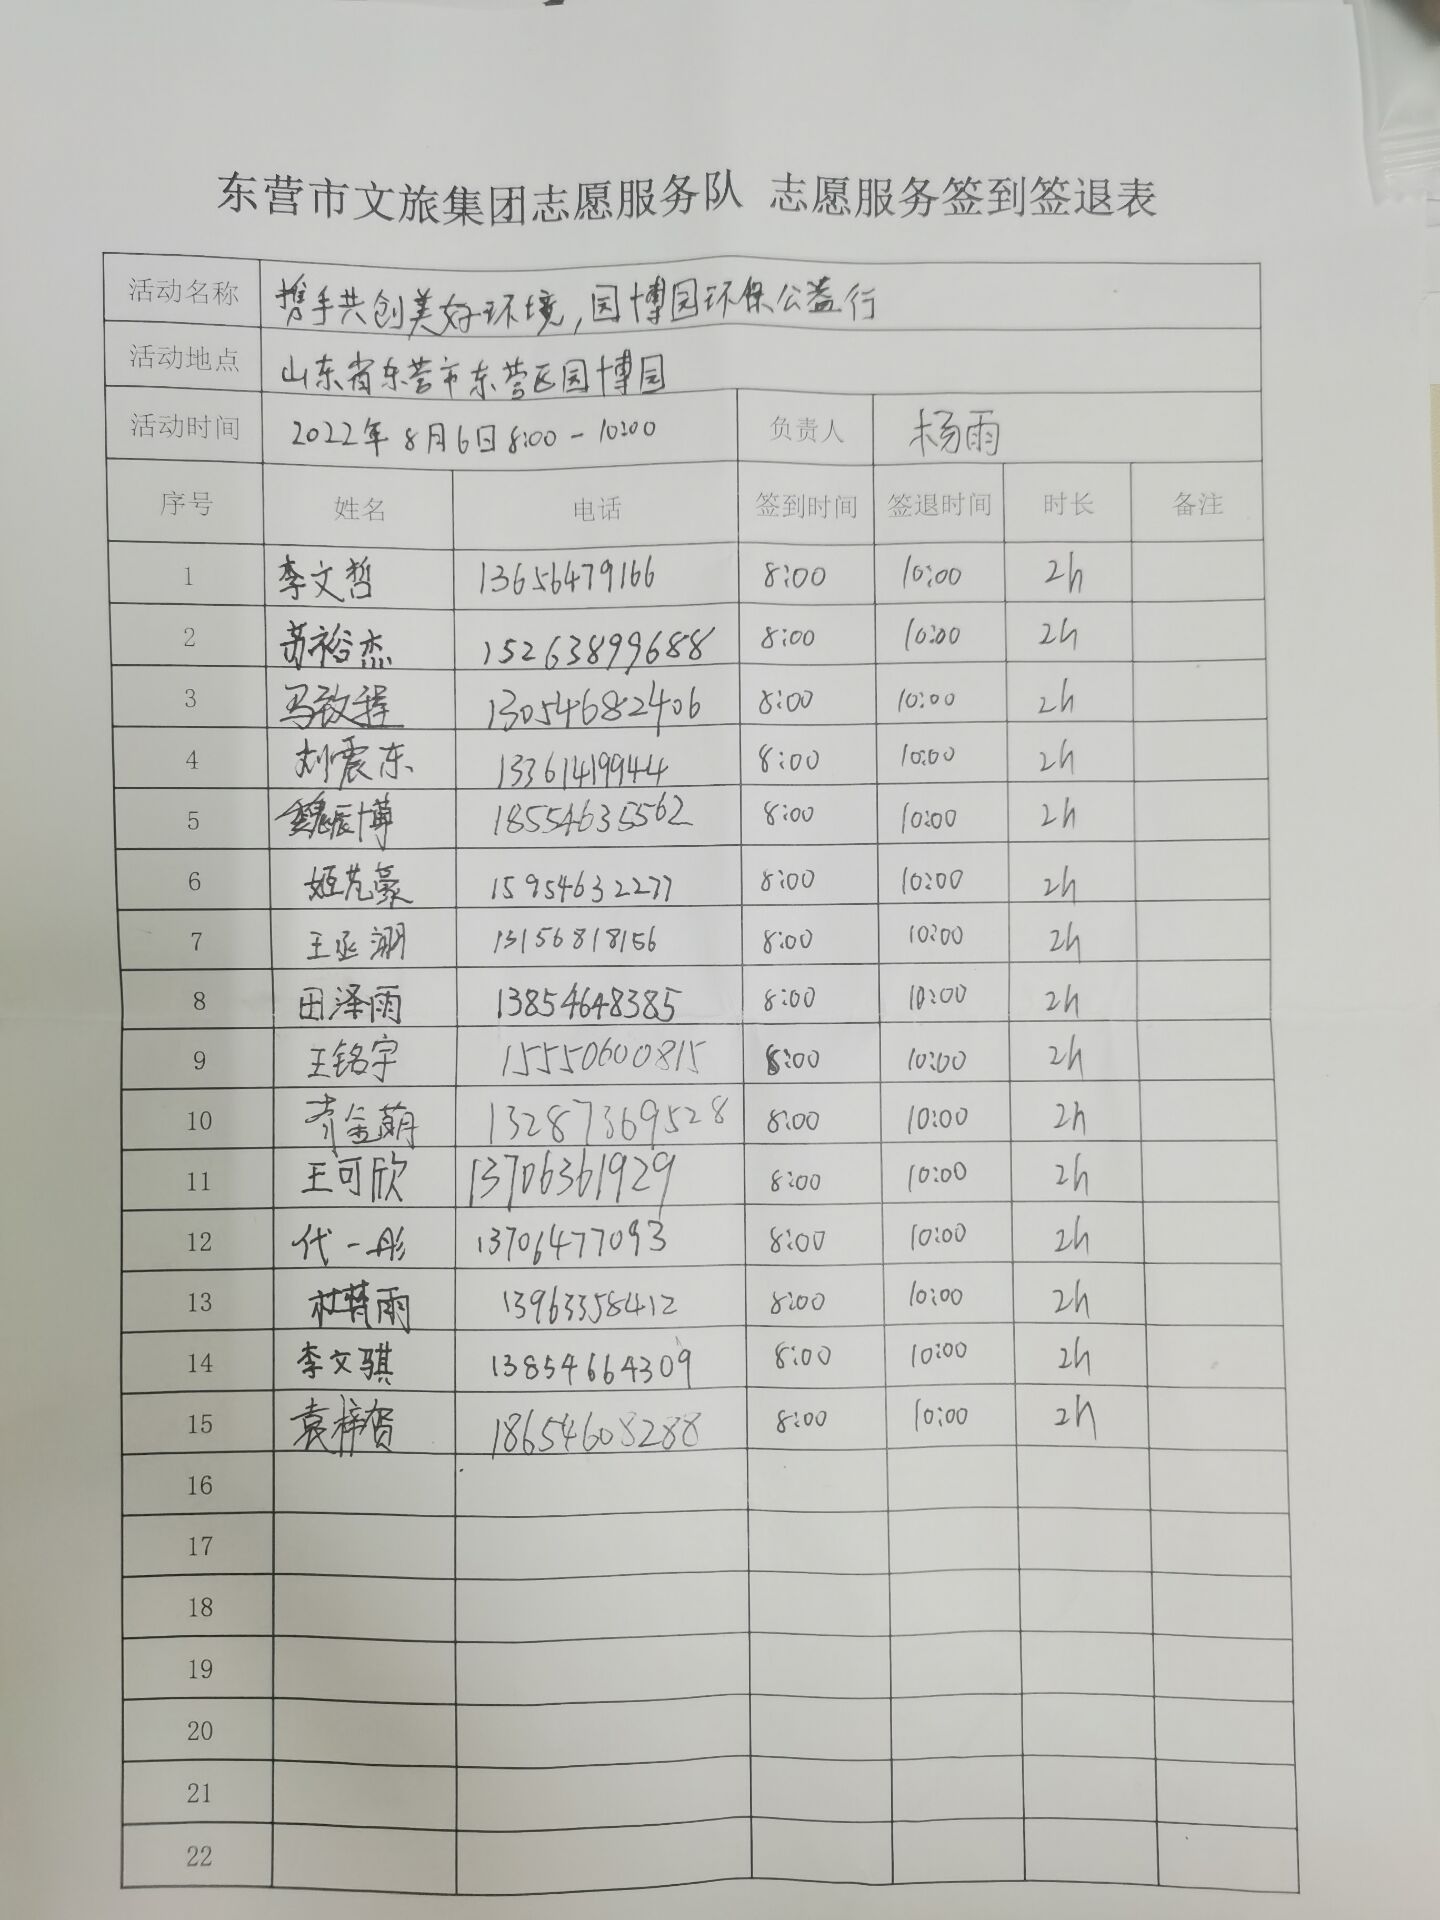 东营市文旅集团志愿服务队 志愿服务签到签退表
活动名称 携手共创美好环境,园博园环保公益行
活动地点 山东省东营市东营区园博园
活动时间 2022年8月6日8:00-10:00 负责人 杨雨
序号 姓名 电话 签到时间 签退时间 时长 备注
1 李文哲 13656479166 8:00 10:00 2h
2 苏裕杰 15263899688 8:00 10:00 2h
3 马致程 13054682406 8:00 10:00 2h
4 刘震东 13361419944 8:00 10:00 2h
5 魏辰博 18554635562 8:00 10:00 2h
6 姬艽豪 15954632277 8:00 10:00 2h
7 王丞溯 13156818156 8:00 10:00 2h
8 田泽雨 13854648385 8:00 10:00 2h
9 王铭宇 15550600815 8:00 10:00 2h
10 13287369528 8:00 10:00 2h
11 王可欣 13706361929 8:00 10:00 2h
12 代一彤 13706477093 8:00 10:00 2h
13 13963358412 8:00 10:00 2h
14 李文骐 13854664309 8:00 10:00 2h
15 袁梓贺 18654608288 8:00 10:00 2h
16
17
18
19
20
21
22